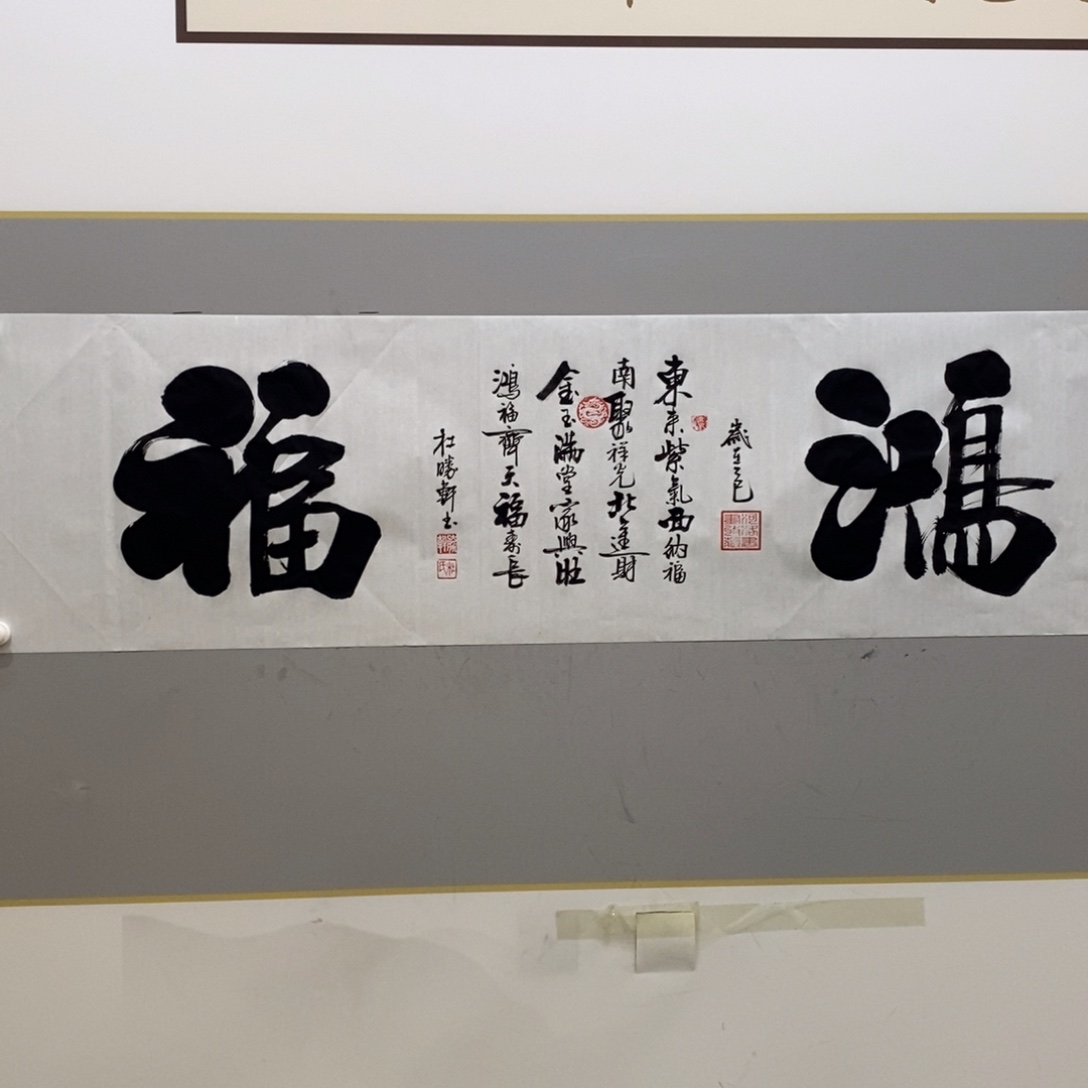 鴻
歲在乙巳
東來紫氣西納福
南聚祥光北進財
金玉滿堂家興旺
鴻福齊天福壽長
杜勝軒书
福